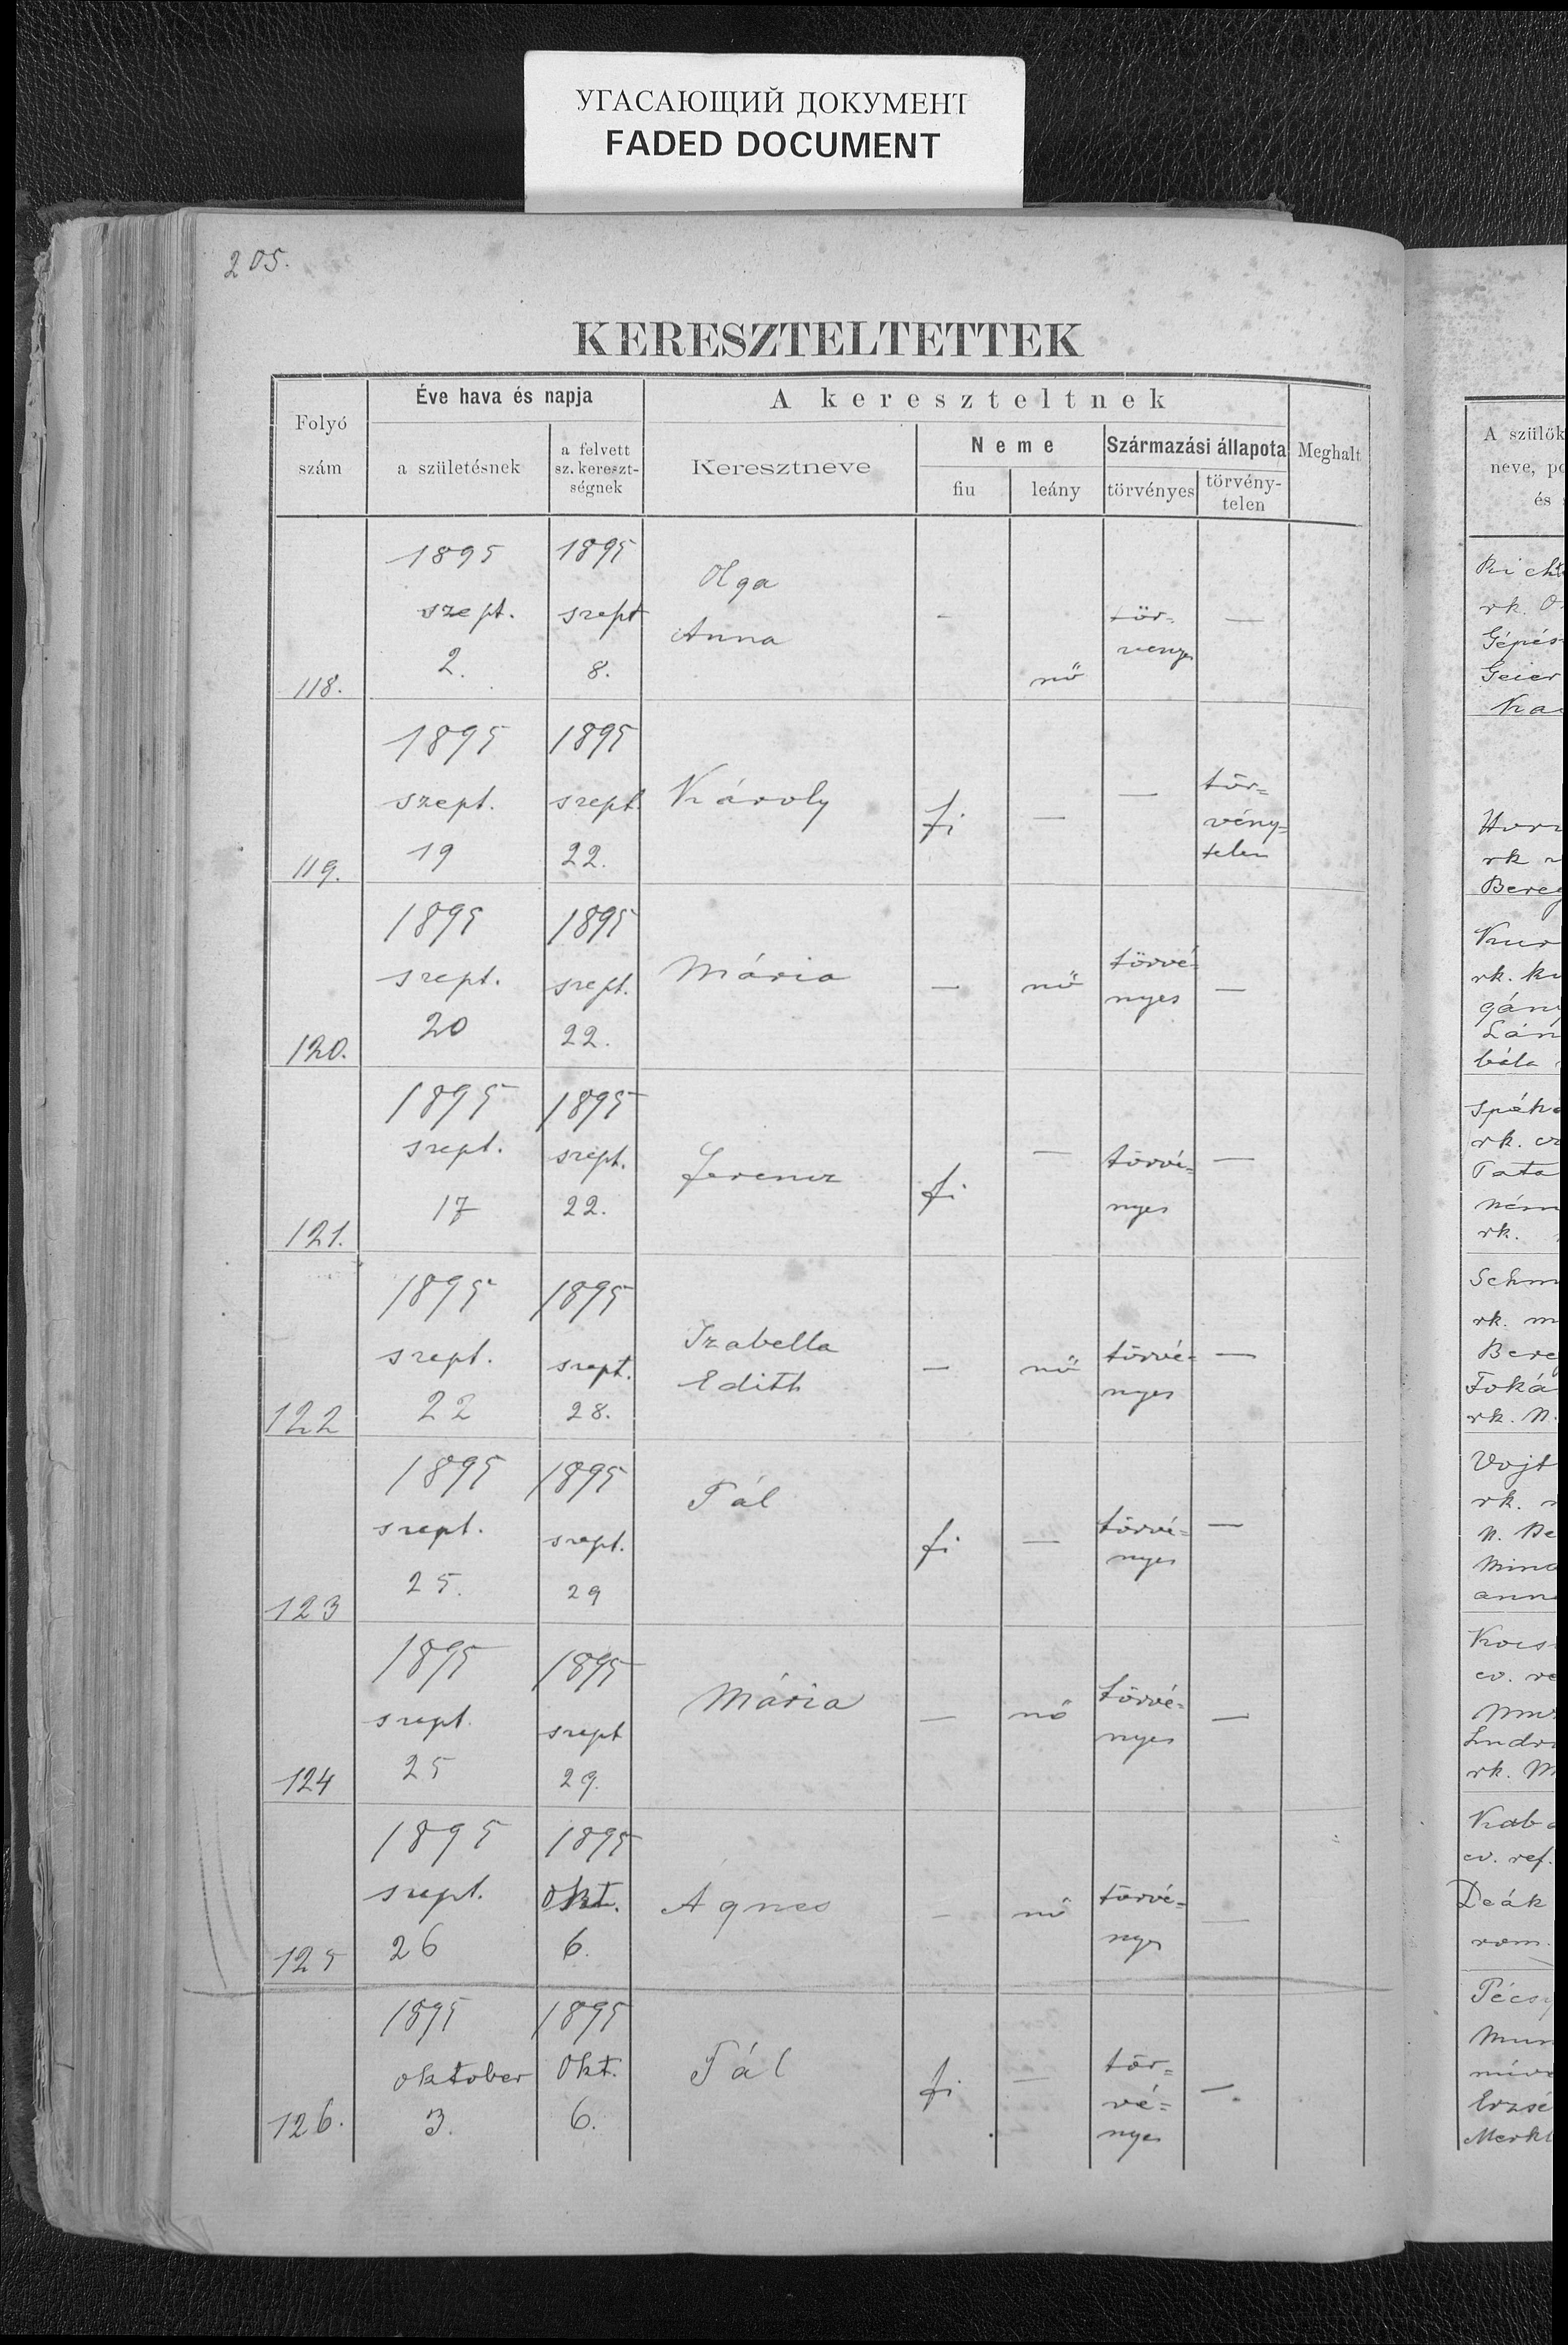 УГАСАЮЩИЙ ДОКУМЕНТ
FADED DOCUMENT
205.
KERESZTELTETTEK
Folyó
szám
Éve hava és napja
a születésnek
a felvett
sz. kereszt-
ségnek
A kereszteltnek
Keresztneve
Neme
fiu
leány
Származási állapota
törvényes
törvény-
telen
Meghalt
118.
1895
szept.
2.
1895
szept
8.
Olga
Anna
-
nő
tör-
venyes
—
119.
1895
szept.
19
1895
szept.
22.
Károly
fi
—
—
tör=
vény=
telen
120.
1895
szept.
20
1895
szept.
22.
Mária
—
nő
törvé-
nyes
—
121.
1895
szept.
17
1895
szept.
22.
Ferencz
fi
—
törvé=
nyes
—
122
1895
szept.
22
1895
szept.
28.
Izabella
Edith
—
nő
törvé=
nyes
—
123
1895
szept.
25.
1895
szept.
29
Pál
fi
—
törvé=
nyes
—
124
1895
szept.
25
1895
szept
29.
Mária
—
nő
törvé=
nyes
—
125
1895
szept.
26
1895
Okt.
6.
Agnes
—
nő
törvé=
nyes
—
126.
1895
oktober
3.
1895
Okt.
6.
Pál
fi
—
tör=
vé=
nyes
—.
A szülők
neve, po
és
rk. O
Gépés
Geier
Ka
rk
Bereg
rk. ku
gány
Lán
béla
rk.
Tata
Ném
rk.
Schm
rk. m
Bere
Toká
rk. N.
Vojt
rk.
N. Be
Mind
anna
Kocs
ev. re
rk. M
Kab
ev. ref.
Deák
rom.
Pécsy
Mun
míve
Erzsé
Merkl